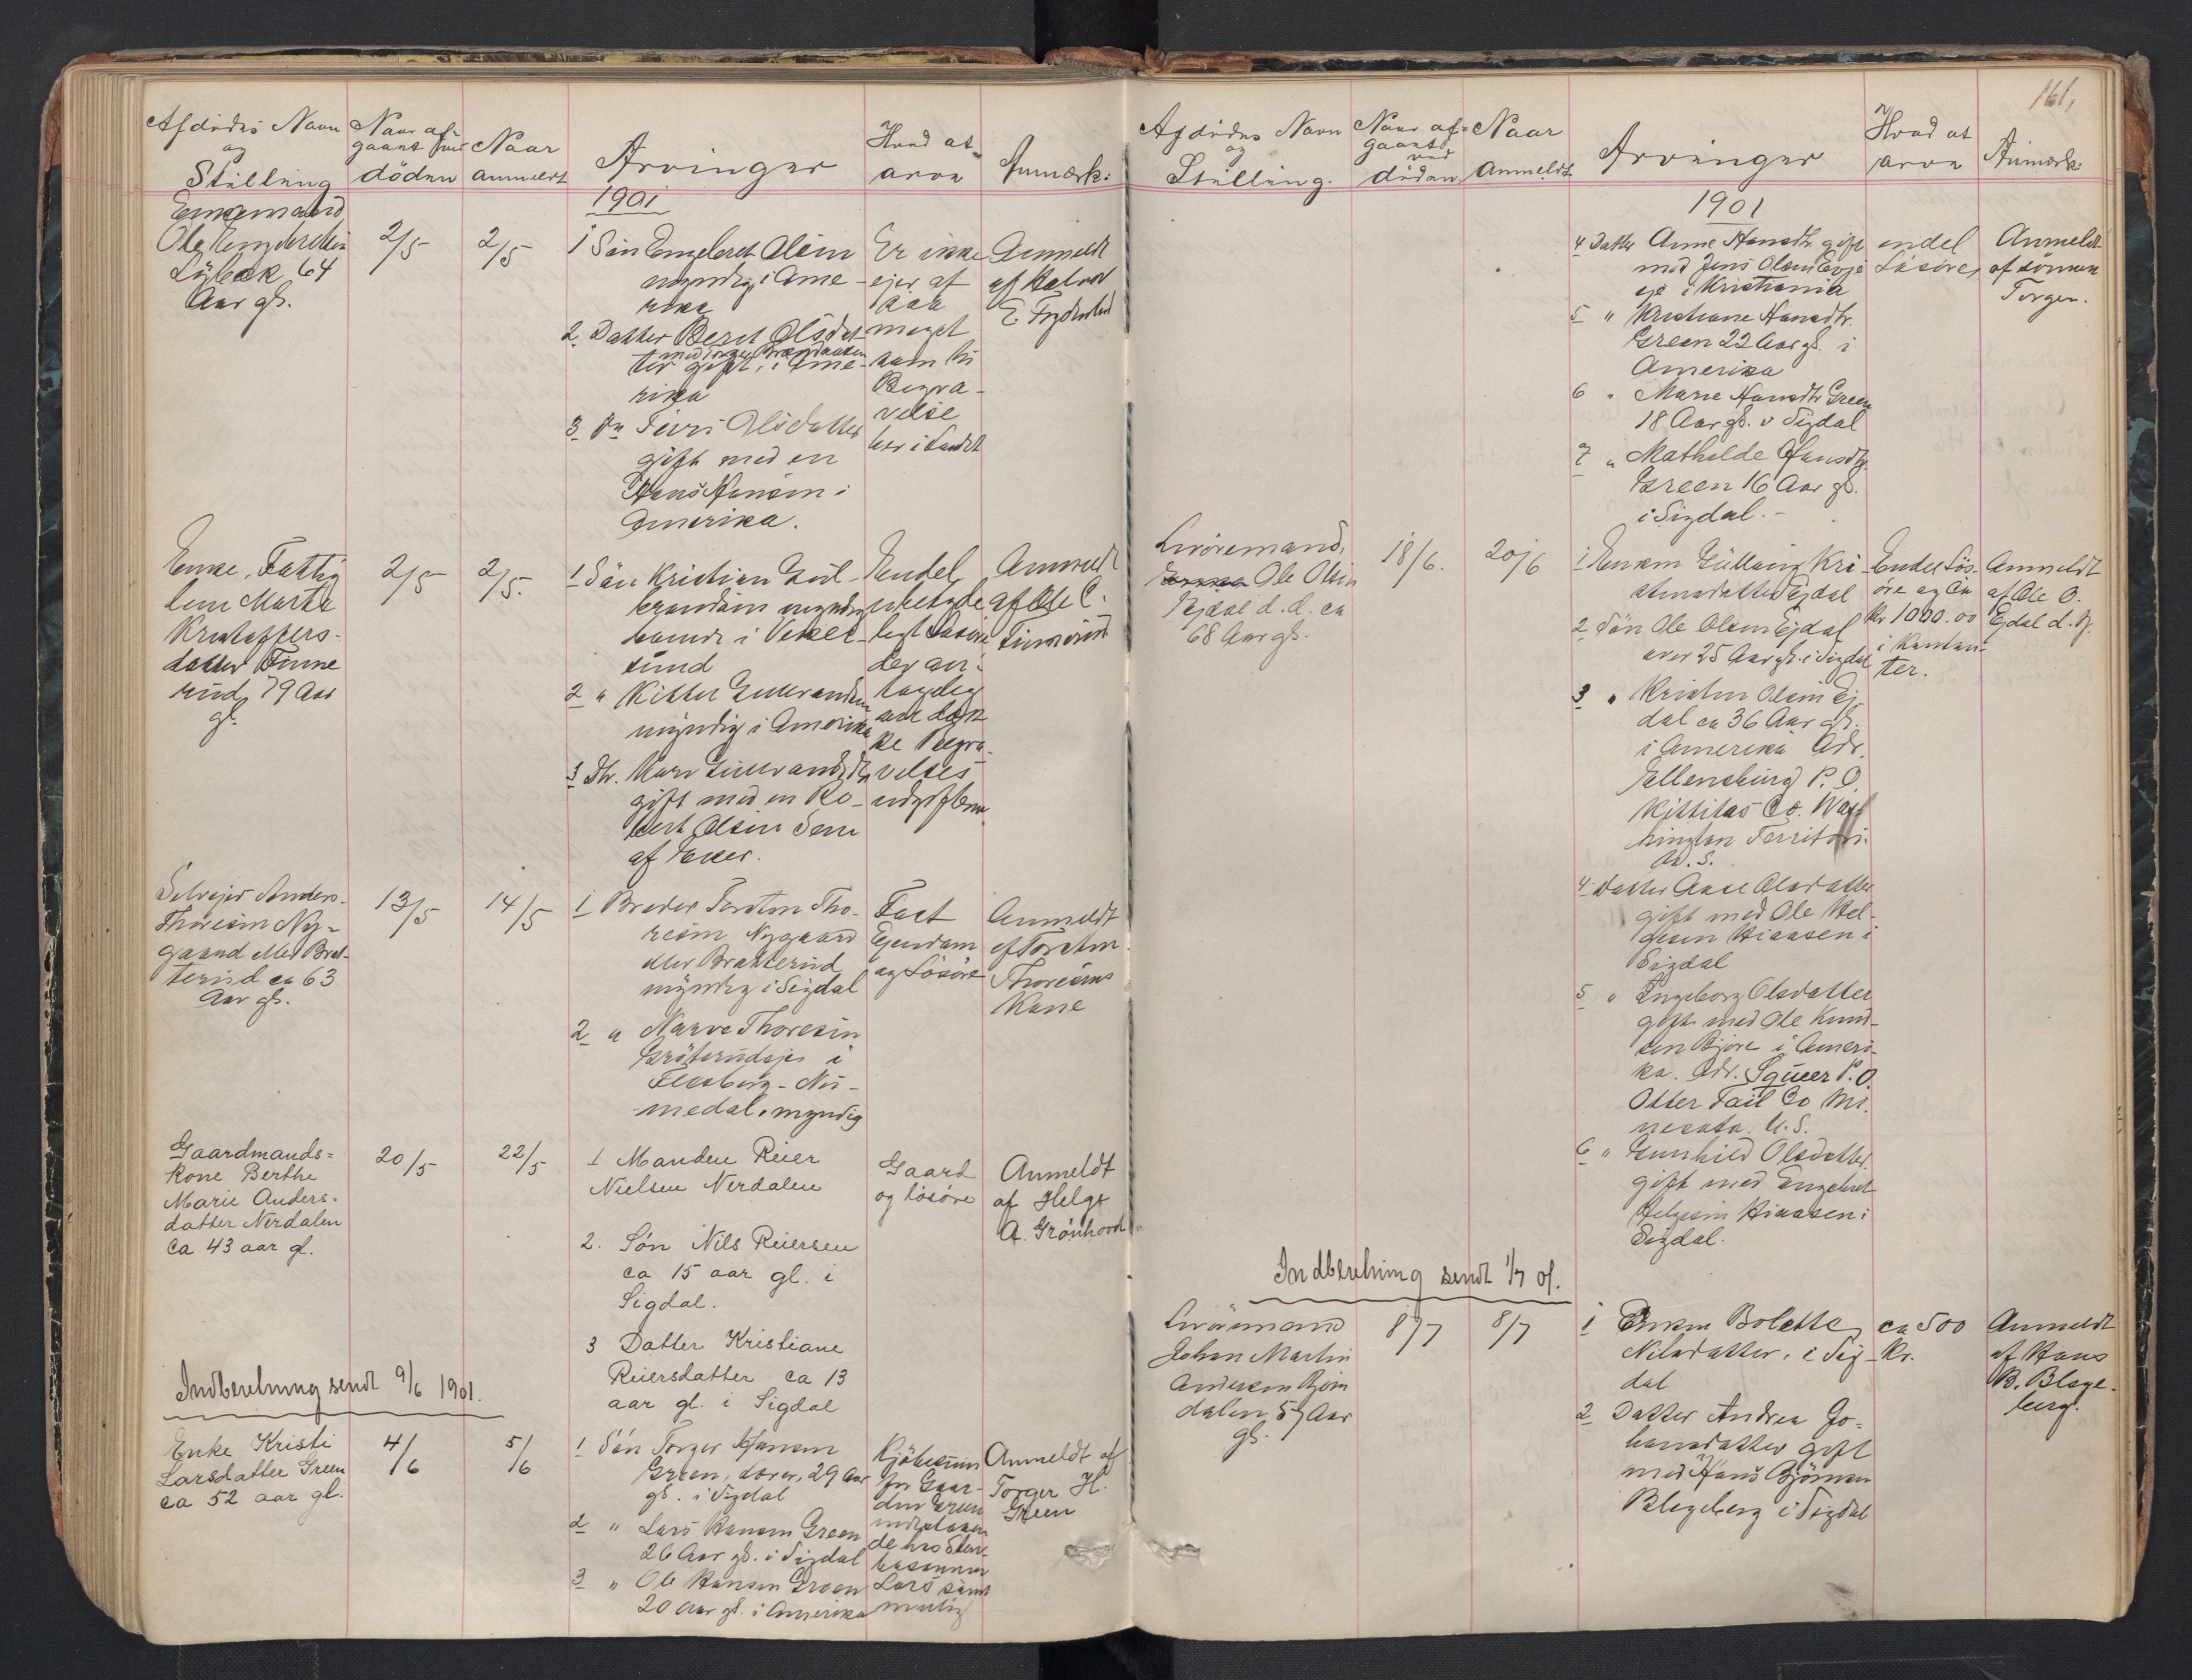 Afdødes Navn
og
Stilling
Naar af-
gaaet ved
døden
Naar
anmeldt
Arvinger
Hvad at
arve
Anmærk:
1901
Enkemand
Ole
Lybæk 64
Aar gl.
2/5
2/5
1 Søn Engebret Olsen
myndig, i Ame-
rika
2 Datter Berit Olsdat-
ter gift, i Ame-
rika
3 Do Siri Olsdatter
gift med en
Hans Hansen i
Amerika.
Er ikke
ejer af
saa
meget
som til
Begra-
velse
her i Landet
Anmeldt
af Halvor
E.
Enke, Fattig
lem Marte
Kristoffers-
datter Finne
rud, 79 Aar
gl.
2/5
2/5.
1 Søn Kristian Gul-
brandsen myndig
boende i Vikel-
sund
2 " Kittel Gulbrandsen
myndig i Amerika
3 Dtr. Mari Gulbrandsdtr
gift med en Ro-
bert Olsen Sem
af Eker.
Endel
ubetyde
ligt Løsøre
der an-
tagelig
kan dæk-
ke Begra-
velses-
udgifterne
Anmeldt
af Ole C.
Finnerud
Selvejer Anders
Thoresen Ny-
gaard eller Brat-
terud ca 63
Aar gl.
13/5
14/5
1 Broder Torsten Tho-
resen Nygaard
eller Bratterud
myndig i Sigdal
2 " Narve Thoresen
Grøterudeje i
Flesberg - Nu-
medal, myndig
Fast
Ejendom
og Løsøre
Anmeldt
af Torsten
Thoresens
Kone
Gaardmands=
kone Berthe
Marie Anders-
datter Nerdalen
ca 43 aar gl.
20/5
22/5
1 Manden Reier
Nielsen Nerdalen
2. Søn Nils Reiersen
ca 15 aar gl. i
Sigdal.
3 Datter Kristiane
Reiersdatter ca 13
aar gl. i Sigdal
Gaard
og løsøre
Anmeldt
af Helge
A. Grønhovd
Indberetning sendt 9/6 1901.
Enke Kristi
Larsdatter Green
ca 52 aar gl.
4/6
5/6
1 Søn Torger Hansen
Green, Lærer, 29 Aar
gl. i Sigdal
2 " Lars Hansen Green
26 Aar gl. i Sigdal
3 " Ole Hansen Green
20 Aar gl. i Amerika
Kjøbesum
for Gaar-
den Green
indestaaen
de hos
Lars samt
mulig
Anmeldt af
Torger H.
Green
161,
Afdødes Navn
og
Stilling.
Naar af=
gaaet
ved
døden
Naar
Anmeldt
Arvinger
Hvad at
arve
Anmærk:
1901
4 Datter Anne Hansdtr gift
med Jens Olsen Evje
eje i Kristiania
5 " Kristiane Hansdtr.
Green 22 Aar gl. i
Amerika
6 " Marie Hansdtr Green
18 Aar gl. i Sigdal
7 " Mathilde Hansdtr.
Green 16 Aar gl.
i Sigdal. -
endel
Løsøre,
Anmeldt
af sønnen
Torger.
Livøremand,
Ole Olsen
Ejdal d. æ. ca
68 Aar gl.
18/6.
20/6
1 Enken Gullaug Kri-
stensdatter Ejdal
2 Søn Ole Olsen Ejdal
over 25 Aar gl. i Sigdal
3 " Kristen Olsen Ej
dal ca 36 Aar gl.
i Amerika Adr.
Ellensburg P. O.
Kittitas Co. Was
hington Territori.
U. S.
4 Datter Aase Olsdatter
gift med Ole Hel-
gesen Hiaasen i
Sigdal
5 " Ingeborg Olsdatter
gift med Ole Knud-
sen Bjøre i Ameri-
ka. Adr. Squeer P.O.
Otter Tail Co Mi.
nesota. U.S.
6 " Gunhild Olsdatter
gift med Engebret
Helgesen Hiaasen i
Sigdal.
Endel Løs-
øre og ca
Kr 1000.00
i Kontan-
ter.
Anmeldt
af Ole O.
Ejdal d. y.
Indberetning sendt 1/7 01.
Livøremand
Johan Martin
Andersen Bjørn
dalen, 57 Aar
gl.
8/7
8/7
1 Enken Bolette
Nilsdatter, i Sig-
dal
2 Datter Andrea Jo-
hansdatter gift
med Hans Bjørnsen
Blegeberg i Sigdal
ca 500
Kr.
Anmeldt
af Hans
B. Blege-
berg.